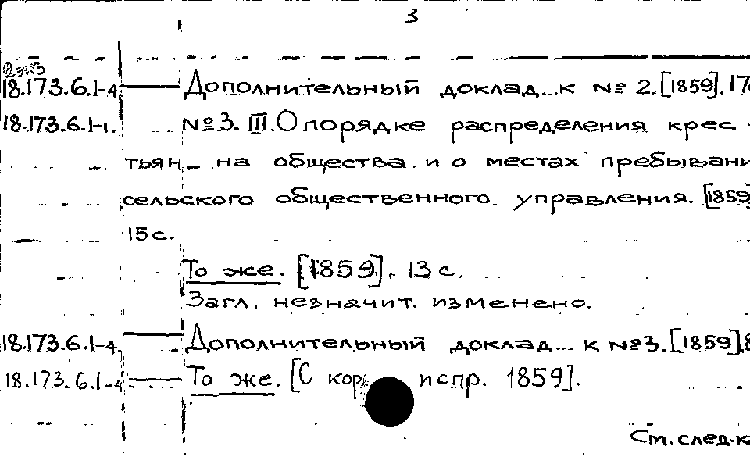 3
18.173.6.1-4 — Дополнительный доклад... к № 2. [1859]. 17
18.173.6.1-1. №3. III. О порядке распределения крес-
тьян на общества и о местах пребывани
сельского общественного управления. [1859]
15с.
То же. [1859]. 13 с.
Загл. незначит. изменено.
18.173.6.1-4 — Дополнительный доклад... к №3. [1859]. 8
18.173.6.1-4 — То же. [С кор испр. 1859].
См. след. к